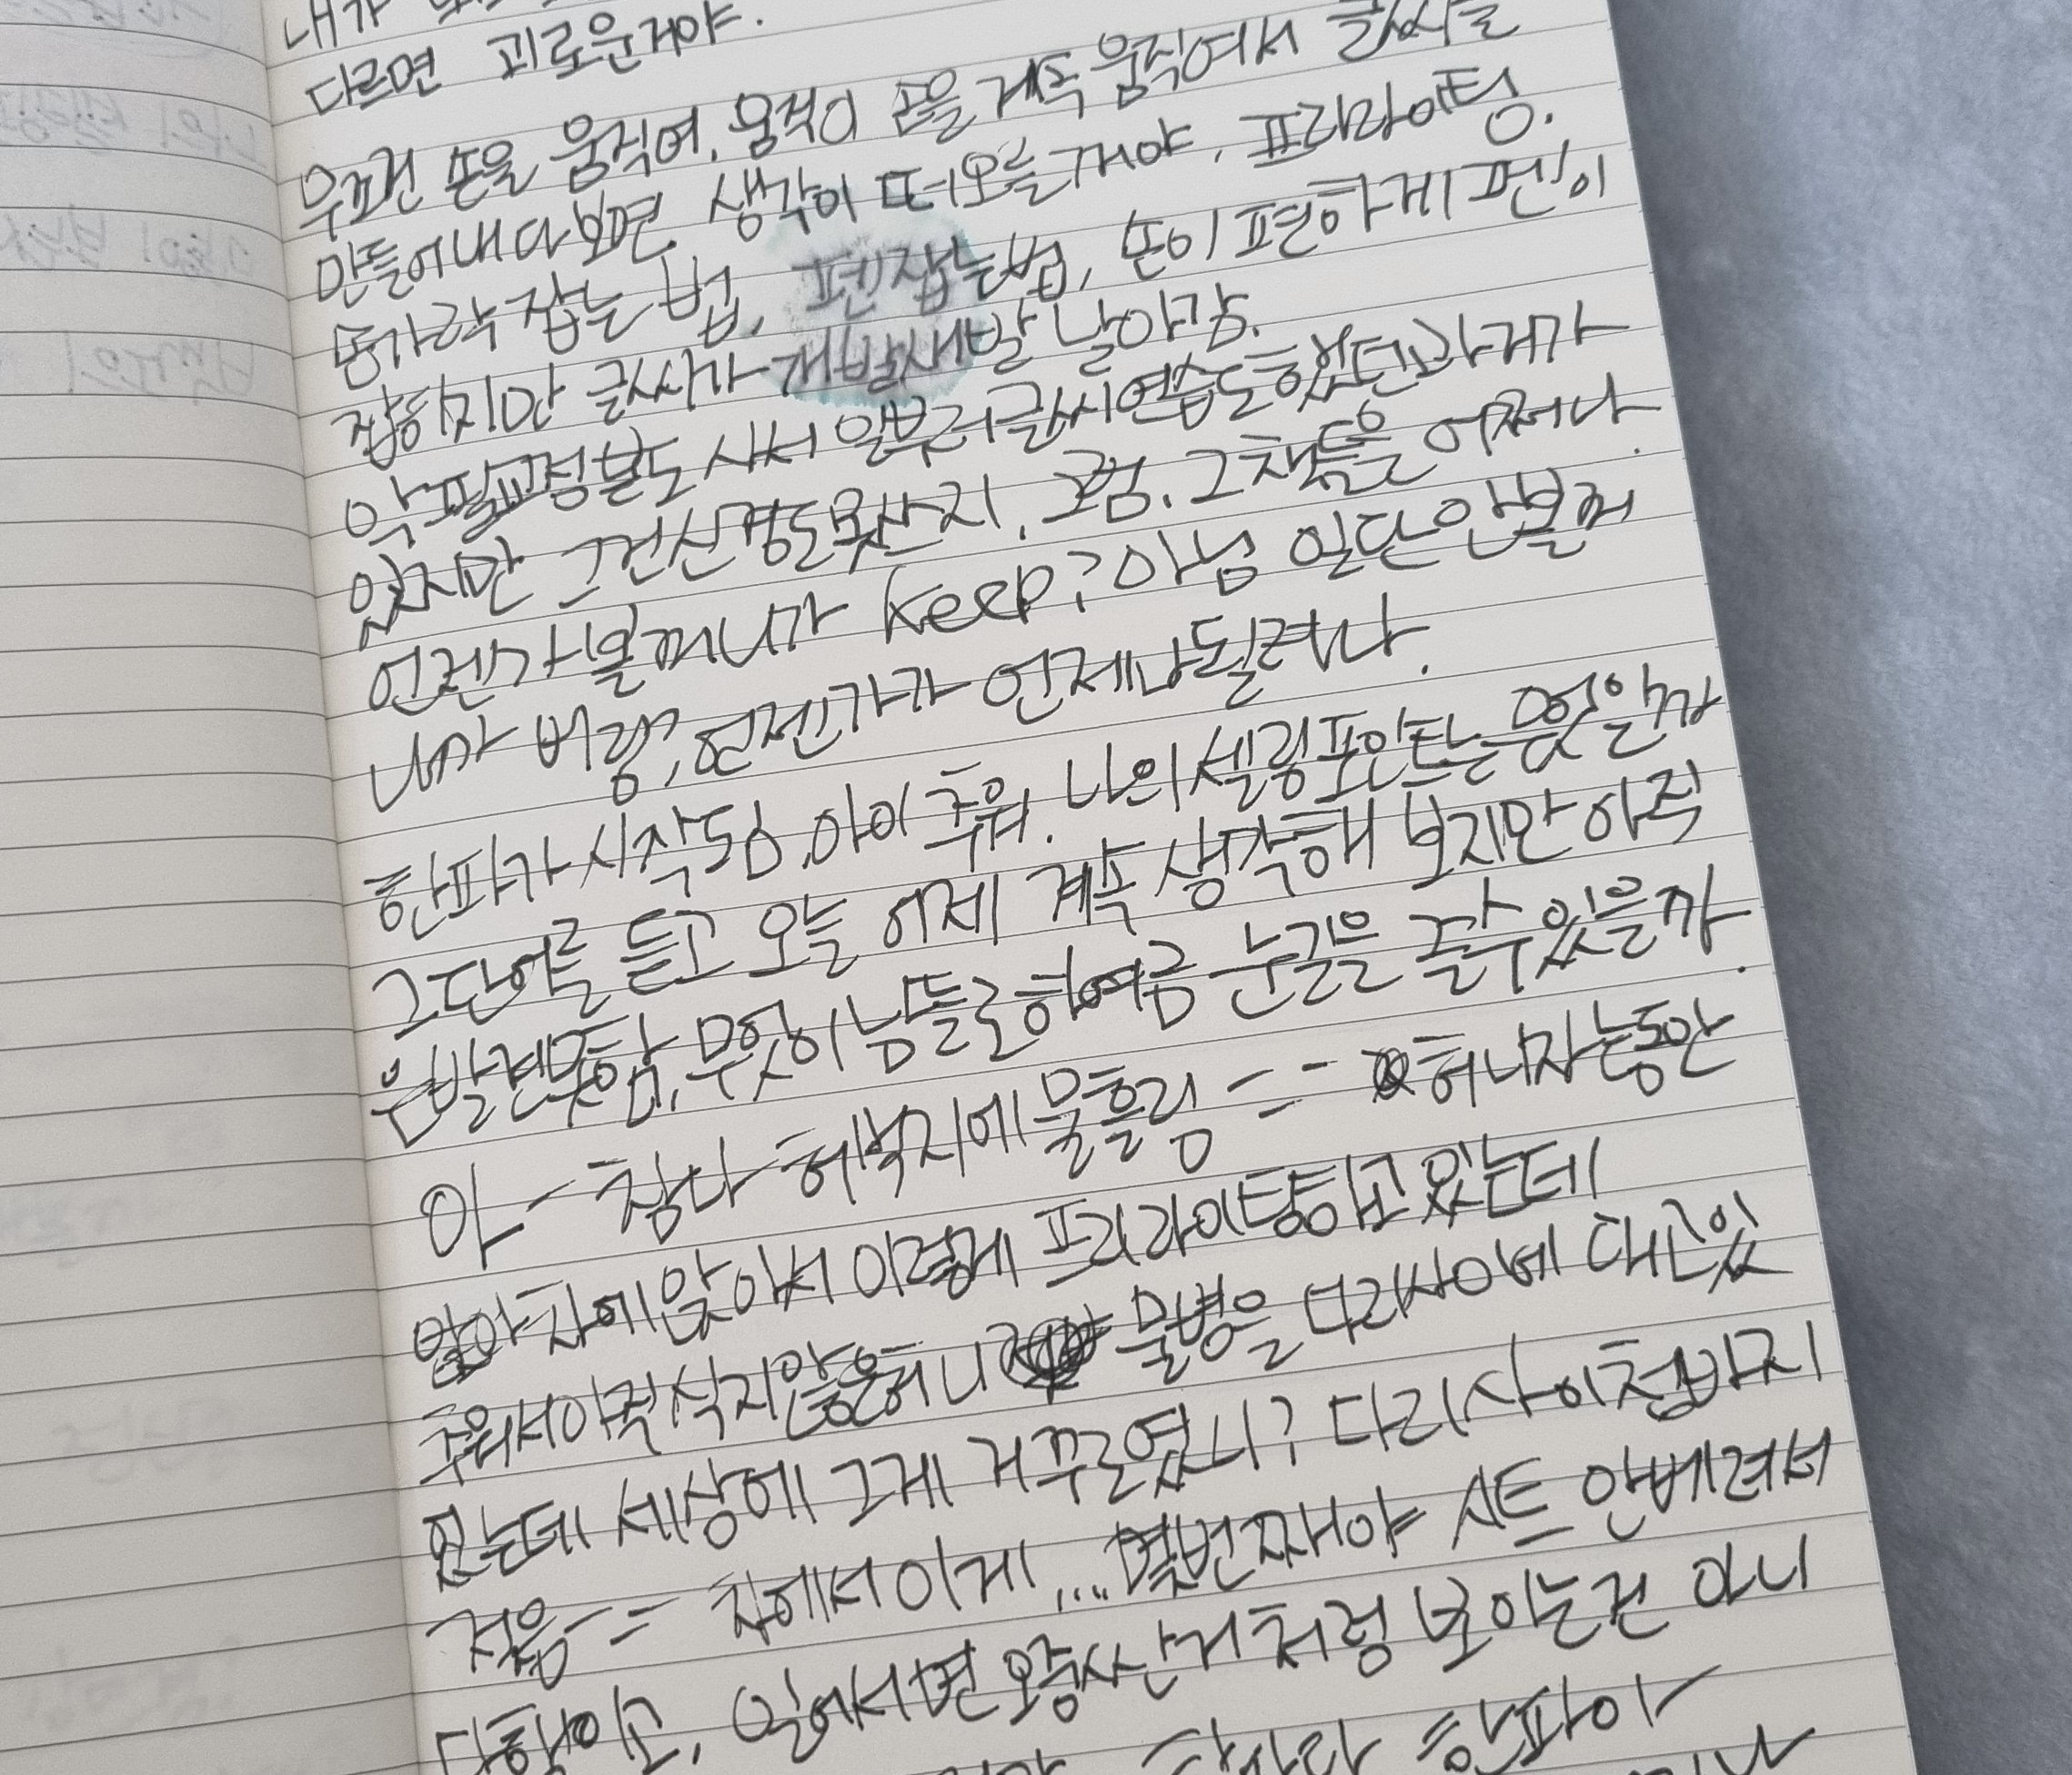 내가
다르면 괴로운거야.
무조건 손을 움직여. 움직여 손을 계속 움직여서 글씨를
만들어내다보면 생각이 떠오를거야. 프리라이팅.
손가락 잡는 법. 펜잡는법, 손이 편하게 펜이
잡히지만 글씨가 개발새발 날아감.
악필교정본도 사서 일부러글씨연습도했던과거가
있지만 그건신경도못쓰지. 그럼. 그책들은 어쩌나.
언젠가볼꺼니까 keep? 아님 일단안볼꺼
니까 버림? 언젠가가 언제나될려나.
한파가시작됨. 아이 추워. 나의셀링포인트는 무엇일까
그단어를 들고 오늘 어제 계속 생각해 보지만 아직
은발견못함. 무엇이 남들로하여금 눈길을 줄수있을까.
아-참나 허벅지에물흘림 -- 허니자는동안
앞차에앉아서 이렇게 프리라이팅하고있는데
추워서아직식지않은허니 물병을 다리사이에 대고있
었는데 세상에 그게 거꾸로였니? 다리사이청바지
젖음-- 차에서이게...몇번째야 시트 안버려서
다행이고, 일어서면 오줌싼거처럼 보이는건 아니
한파아